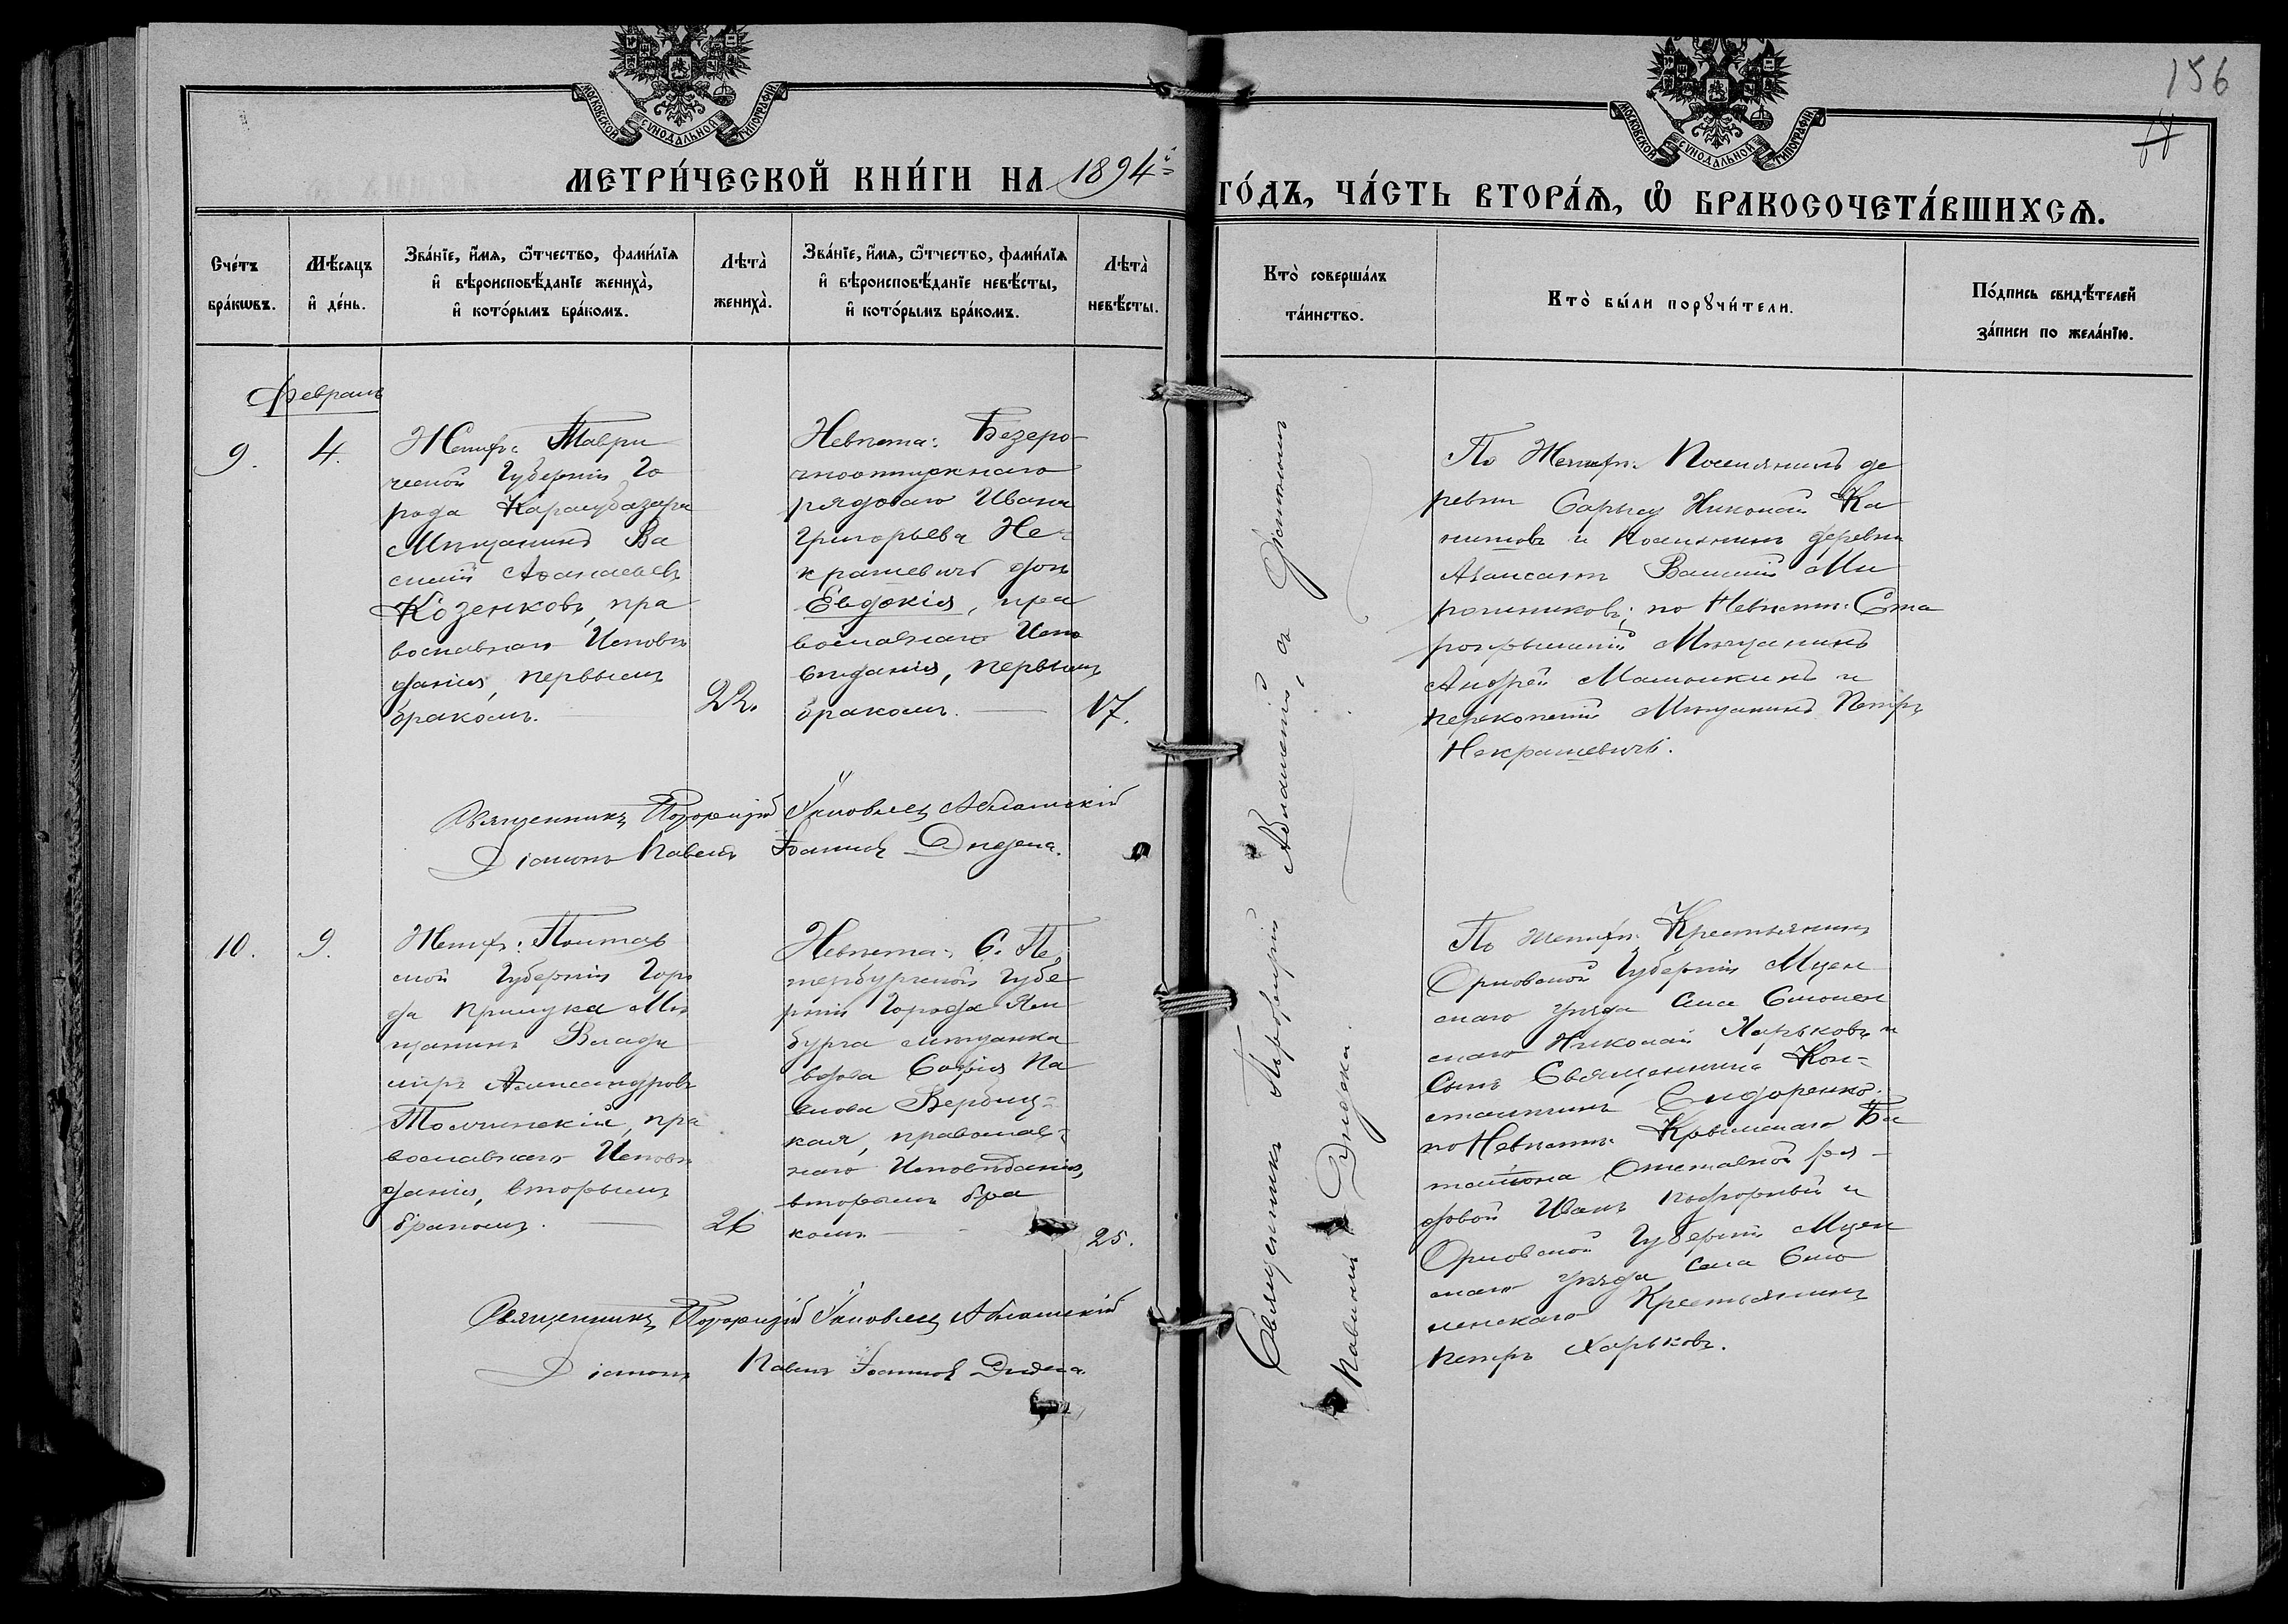 156
МОСКОВСКОЙ СѴНОДАЛЬНОЙ ТИПОГРАФІИ
МОСКОВСКОЙ СѴНОДАЛЬНОЙ ТИПОГРАФІИ
МЕТРИ́ЧЕСКОЙ КНИ́ГИ НА 1894й
ГО́ДЪ, ЧА́СТЬ ВТОРА́Ѧ, Ѽ БРАКОСОЧЕТА́ВШИХСѦ.
Сче́тъ бра́кѡвъ.
Мѣ́сяцъ и҆ де́нь.
Зва́нїе, и҆́мѧ, ѻ҆́тчество, фами́лїѧ и҆ вѣроисповѣ́данїе жениха̀, и҆ кото́рымъ бра́комъ.
Лѣта̀ жениха̀.
Зва́нїе, и҆́мѧ, ѻ҆́тчество, фами́лїѧ и҆ вѣроисповѣ́данїе невѣ́сты, и҆ кото́рымъ бра́комъ.
Лѣта̀ невѣ́сты.
Кто̀ соверша́лъ та́инство.
Кто̀ бы́ли порꙋчи́тели.
По́дпись свидѣ́телей за́писи по жела́нїю.
Февраль
9.
4.
Женихъ: Таври
ческой Губерніи Го
рода Карасубазара
Мѣщанинъ Ва
силій Аѳанасьевъ
Козенковъ, пра
вославнаго Исповѣ
данія, первымъ
бракомъ.
22.
Невѣста: Безсро-
чноотпускнаго
рядоваго Ивана
Григорьева Не-
крашевичъ дочь
Евдокія, пра
вославнаго Испо
вѣданія, первымъ
бракомъ.
17.
Священникъ Порфирій Аблажскій, съ Діакономъ
Павломъ Дидена.
По Женихѣ: Поселянинъ де
ревни Сарысу Николай Ка
и Поселянинъ деревни
Василій Ми
рошниковъ; по Невѣстѣ: Ста
рокрымскій Мѣщанинъ
Андрей и
перекопскій Мѣщанинъ Петръ
Некрашевичъ.
Священникъ Порфирій Іаковлевъ Аблажскій
Діаконъ Павелъ Іоанновъ Дидена.
10.
9.
Женихъ: Полтав
ской Губерніи Горо
да Прилука Мѣ
щанинъ Влади
міръ Александровъ
Толчинскій, пра
вославнаго Исповѣ
данія, вторымъ
бракомъ.
26
Невѣста: С. Пе
тербургской Губе
рніи Города Ям
бурга мѣщанка
вдова Софія Па
влова Вербиц-
кая, православ-
наго Исповѣданія,
вторымъ бра
комъ
25.
По женихѣ: Крестьянинъ
Орловской Губерніи Мцен
скаго уѣзда Села Смолен
скаго Николай Харьковъ и
Сынъ Священника Кон-
стантинъ Сидоренко;
по Невѣстѣ: Крымскаго Ба
таліона Отставной ря-
довой Иванъ Подгорный и
Орловской Губерніи Мцен
скаго уѣзда Села Смо
ленскаго Крестьянинъ
Петръ Харьковъ.
Священникъ Порфирій Іаковлевъ Аблажскій
Діаконъ Павелъ Іоанновъ Дидена.